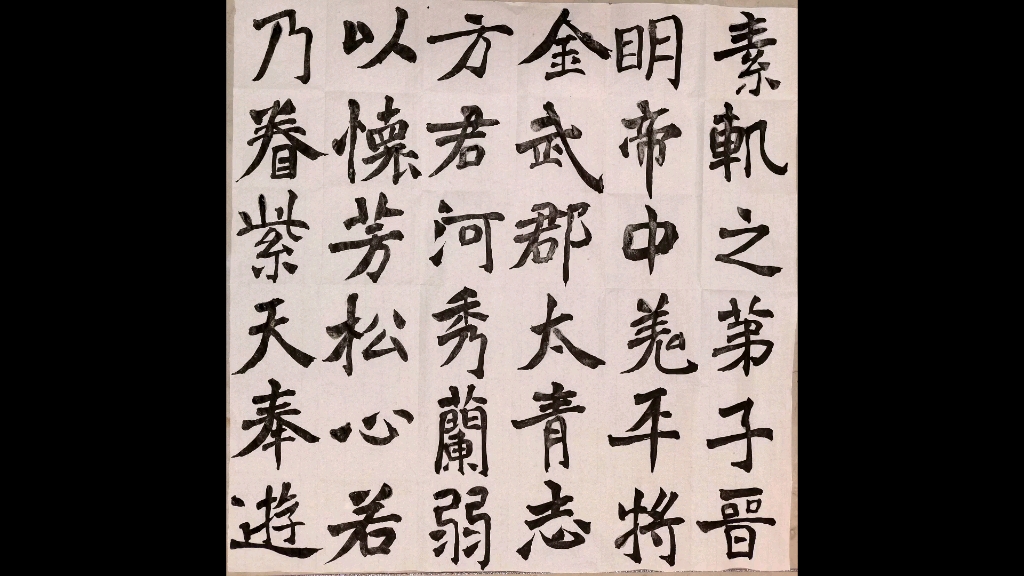 素軌之苐子晉
眀帝中羌平將
金武郡太青志
方君河秀蘭弱
以懷芳松心若
乃眷紫天奉遊